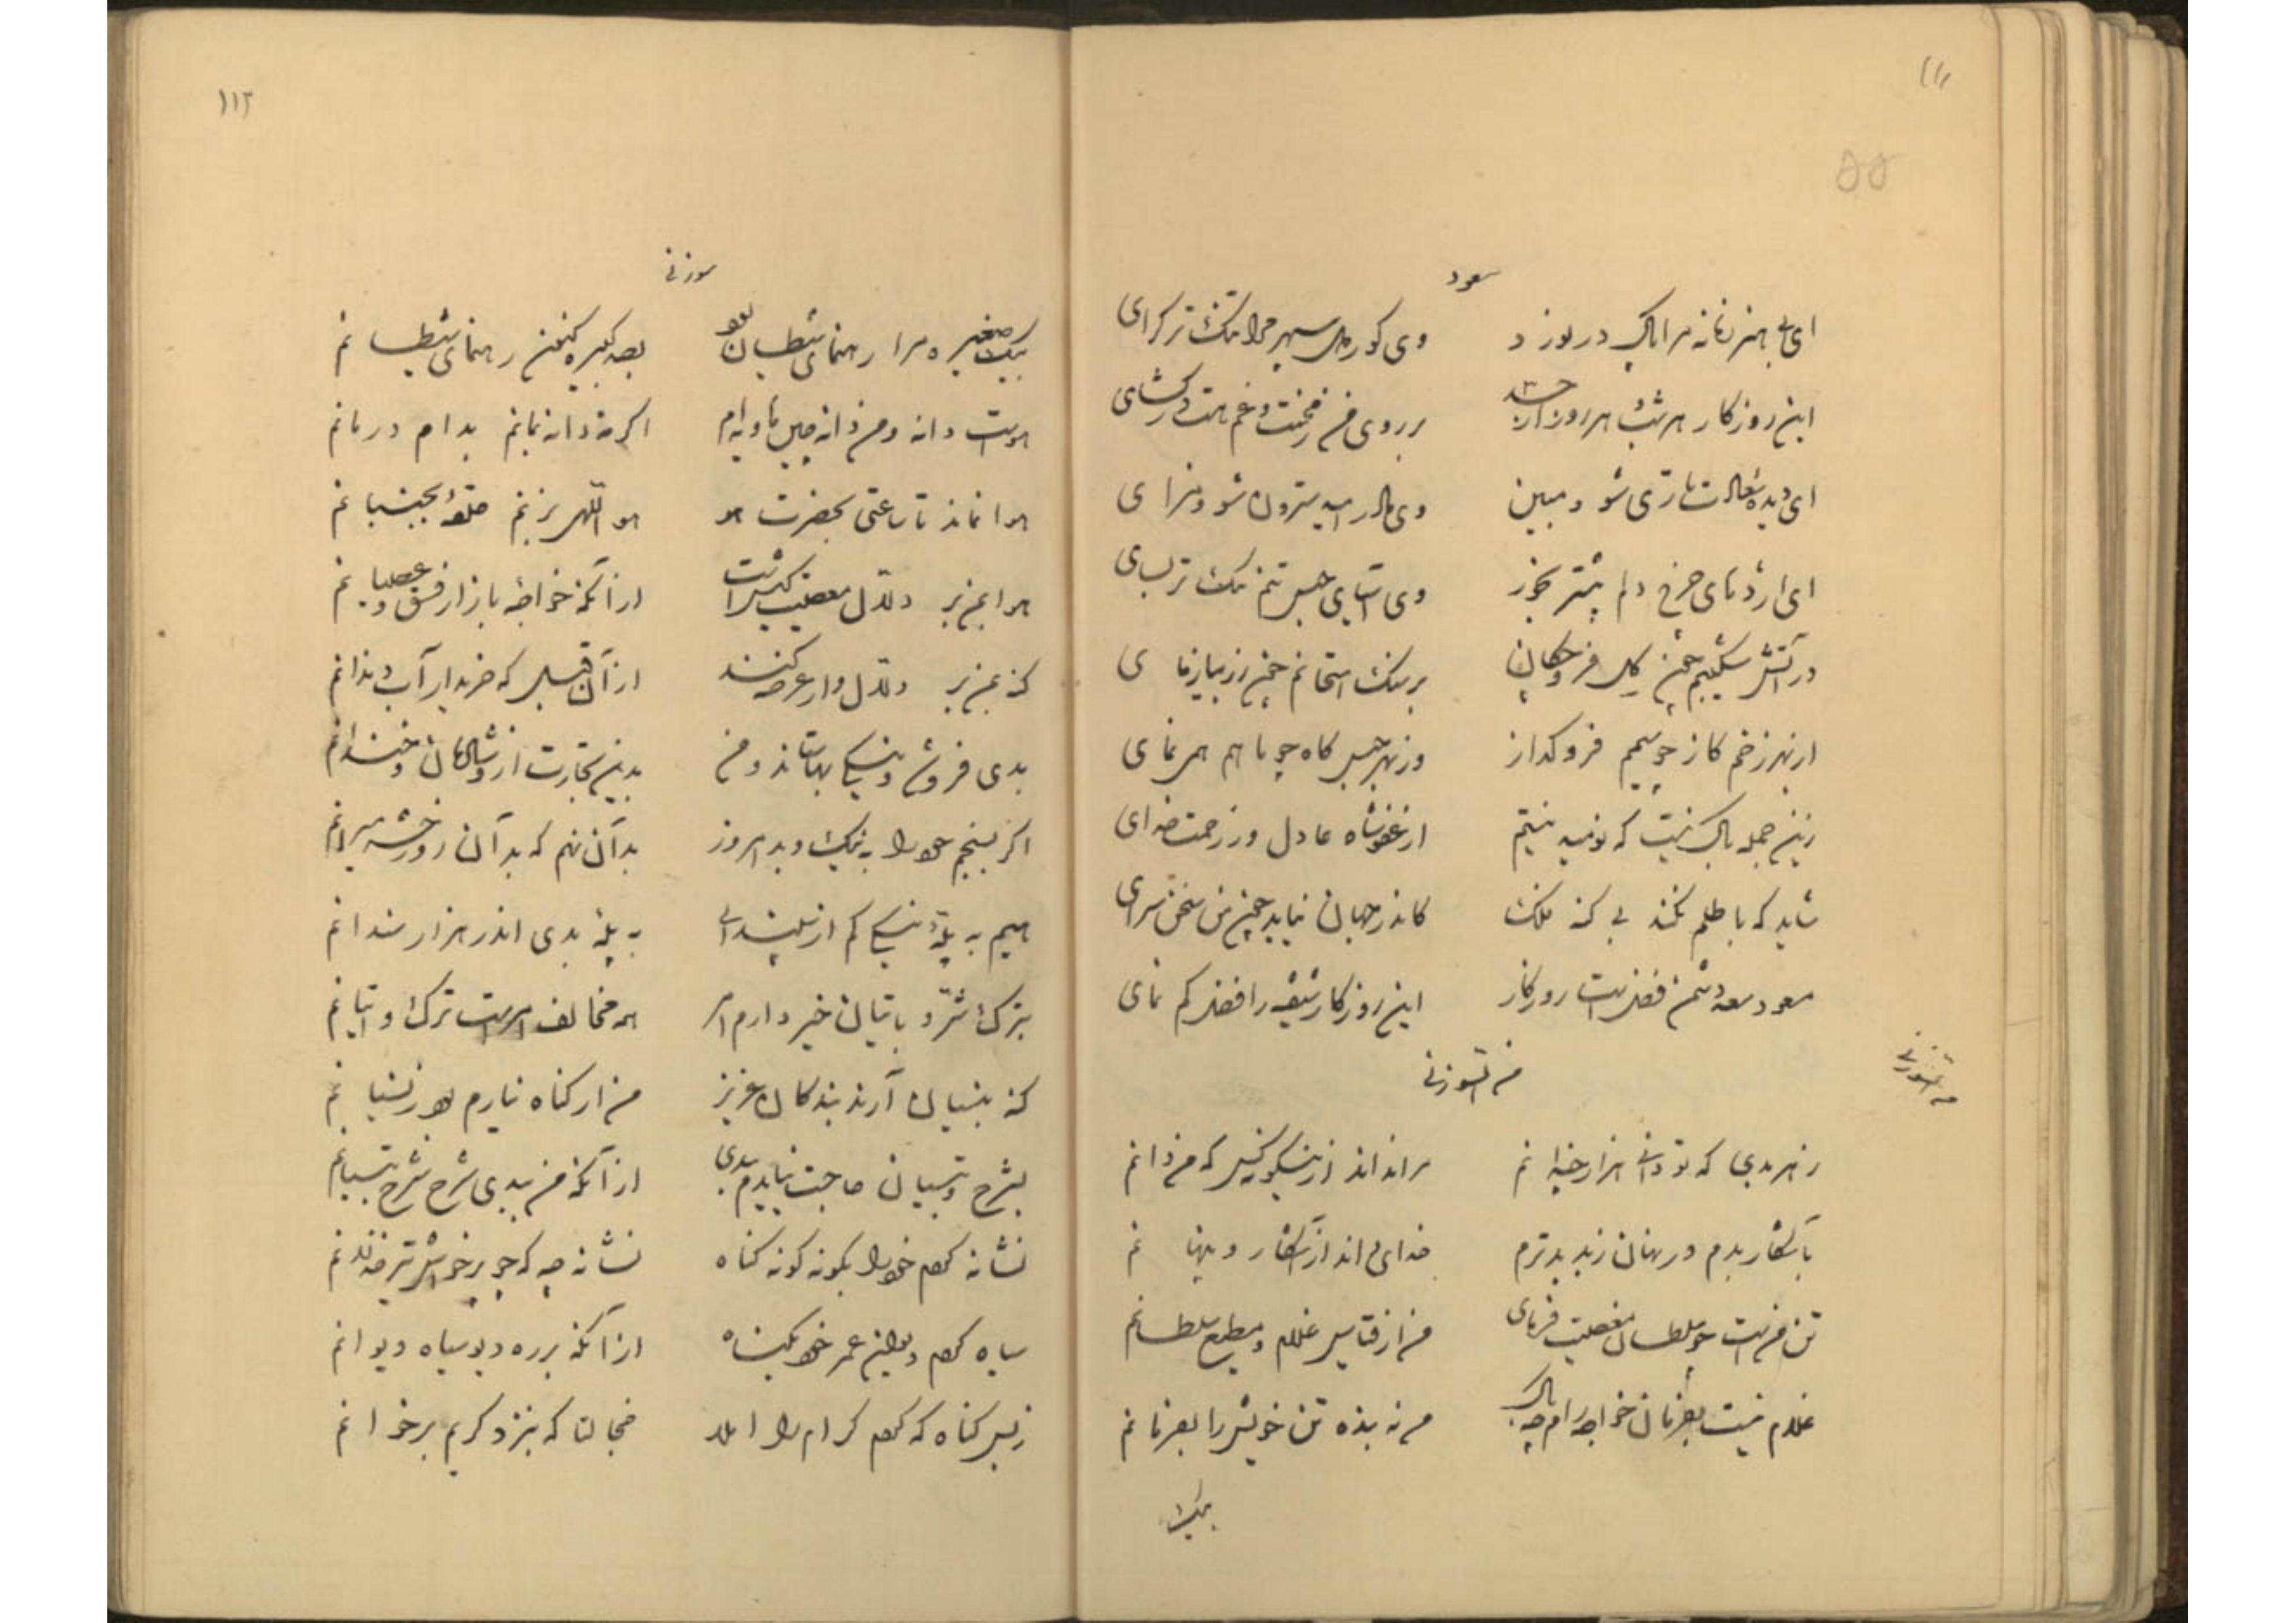 ۱۱۱
۵۵
مسعود
ای بی هنر زمانه مرا پاک در نورد وی کوردل سپهر مرا نیک ترکرای
این روزکار هر شب و هر روز از حسد بر روی من ز محنت و غم هست درکشای
ای دیده سعادت تاری شو و مبین وی مادر امید سترون شو و مزای
ای اژدهای چرخ دلم بیشتر بخور وی آسیای حبس تنم نیک تر بسای
در آتش شکیبم چون کل فرو چکان بر سنک امتحانم چون زر بیازمای
از بهر زخم کاز چو سیمم فرو کداز وز بهر حبس کاه چو مارم همی نمای
زین جمله باک نیست که نومید نیستم از عفو شاه عادل وز رحمت خدای
شاید که با ظلم نکند بی کنه ملک کاندر جهان نیابد چون من سخن سرای
مسعود سعد دشمن فضل است روزکار این روزکار شیفته را فضل کم نمای
من السوزنی
من السوزنی
ز هر بدی که تو دانی هزار چندانم مرا نداند ازینکونه کس که من دانم
بآشکار بدم در نهان ز بد بترم خدای داند از آشکار و پنها نم
تن من است چو سلطان معصیت فرمای من از قیاس غلام و مطیع سلطانم
غلام نیست بفرمان خواجه رام چه باک من نه بنده تن خویش را بفرمانم
بیک
۱۱۲
سوزنی
بیک صغیره مرا رهنمای شیطان بود بصد کبیره کنون رهنمای شیطا نم
هواست دانه و من دانه چین و دام اکر نه دانه نمایم بدام در مانم
هوا نماند تا ساعتی بحضرت هو هو اللهی بزنم حلقهٔ بجنبا نم
هوا بمن بر دلال معصیت کیراست از آنکه خواجهٔ بازار فسق و عصیا نم
کنه بمن بر دلال وار عرضه کنند از آن قبل که خریدار آب دندانم
بدی فروشم و نیکی بها ستاند و من بدین تجارت ازو شادمان و خندانم
اکر بسنجم خود را به نیک و بد امروز بد آن نهم که بد آن روز حشر میزانم
هیم به پلهٔ نیکی کم از سپندانی به پلهٔ بدی اندر هزار سندانم
بترک شر و باتیان خیر دارم امر همه مخالف امرست ترک و اتیا نم
کنه بنسیان آرند بندکان عزیز من از کناه نیارم که بود نسیا نم
بشرح و تبیان حاجت نیایدم ببدی از آنکه من ببدی شرح شرح تبیانم
نشانه کردم خود را بکونه کونه کناه نشانهٔ چه که چو بر خویش تیر خذلا نم
سیاه کردم دیوان عمر خود بکناه از آنکه بر ره دیو سیاه دیوانم
ز بس کناه که کردم کرام را املا خجالتا که بنزد کریم برخوا نم